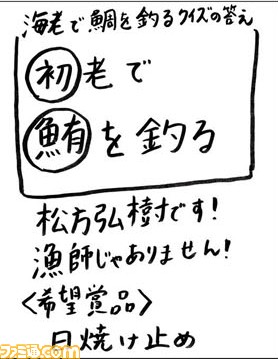 海老で鯛を釣るクイズの答え
初老で
鮪を釣る
松方弘樹です!
漁師じゃありません!
<希望賞品>
日焼け止め
ファミ通.com